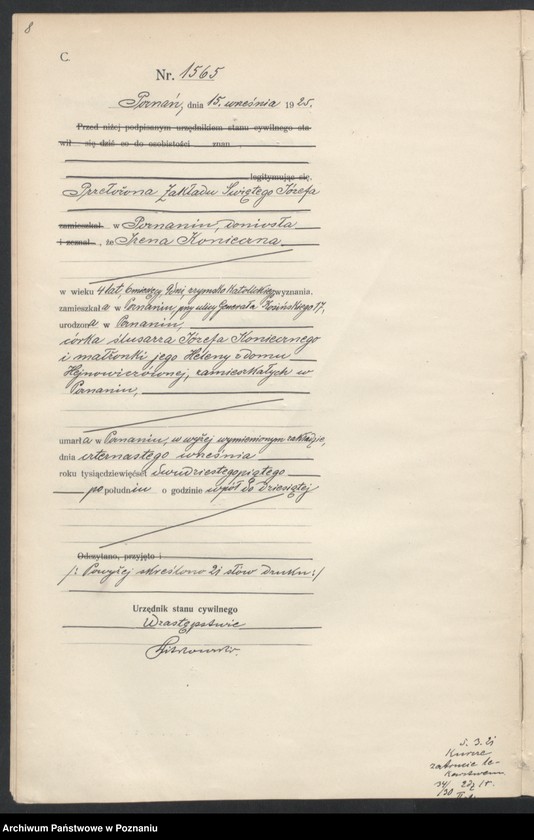 8
C
Nr. 1565
Poznań, dnia 15. września 1925.
Przed niżej podpisanym urzędnikiem stanu cywilnego sta-
wił się dziś co do osobistości znan
legitymując się,
Przełożona Zakładu Świętego Józefa
zamieszkał w Poznaniu, doniosła
i zeznał, że Irena Konieczna
w wieku 4 lat, 6 miesięcy, 9 dni, rzymsko katolickiego wyznania,
zamieszkała w Poznaniu, przy ulicy Generała Kosińskiego 17,
urodzona w Poznaniu,
córka ślusarza Józefa Koniecznego
i małżonki jego Heleny z domu
Hejnowiczównej, zamieszkałych w
Poznaniu,
umarła w Poznaniu, w wyżej wymienionym zakładzie,
dnia czternastego września
roku tysiącdziewięćset dwudziestego piątego
po południu o godzinie wpół do dziesiątej
Odczytano, przyjęto i
/: Powyżej skreślono 21 słów druku :/
Urzędnik stanu cywilnego
W zastępstwie
Archiwum Państwowe w Poznaniu